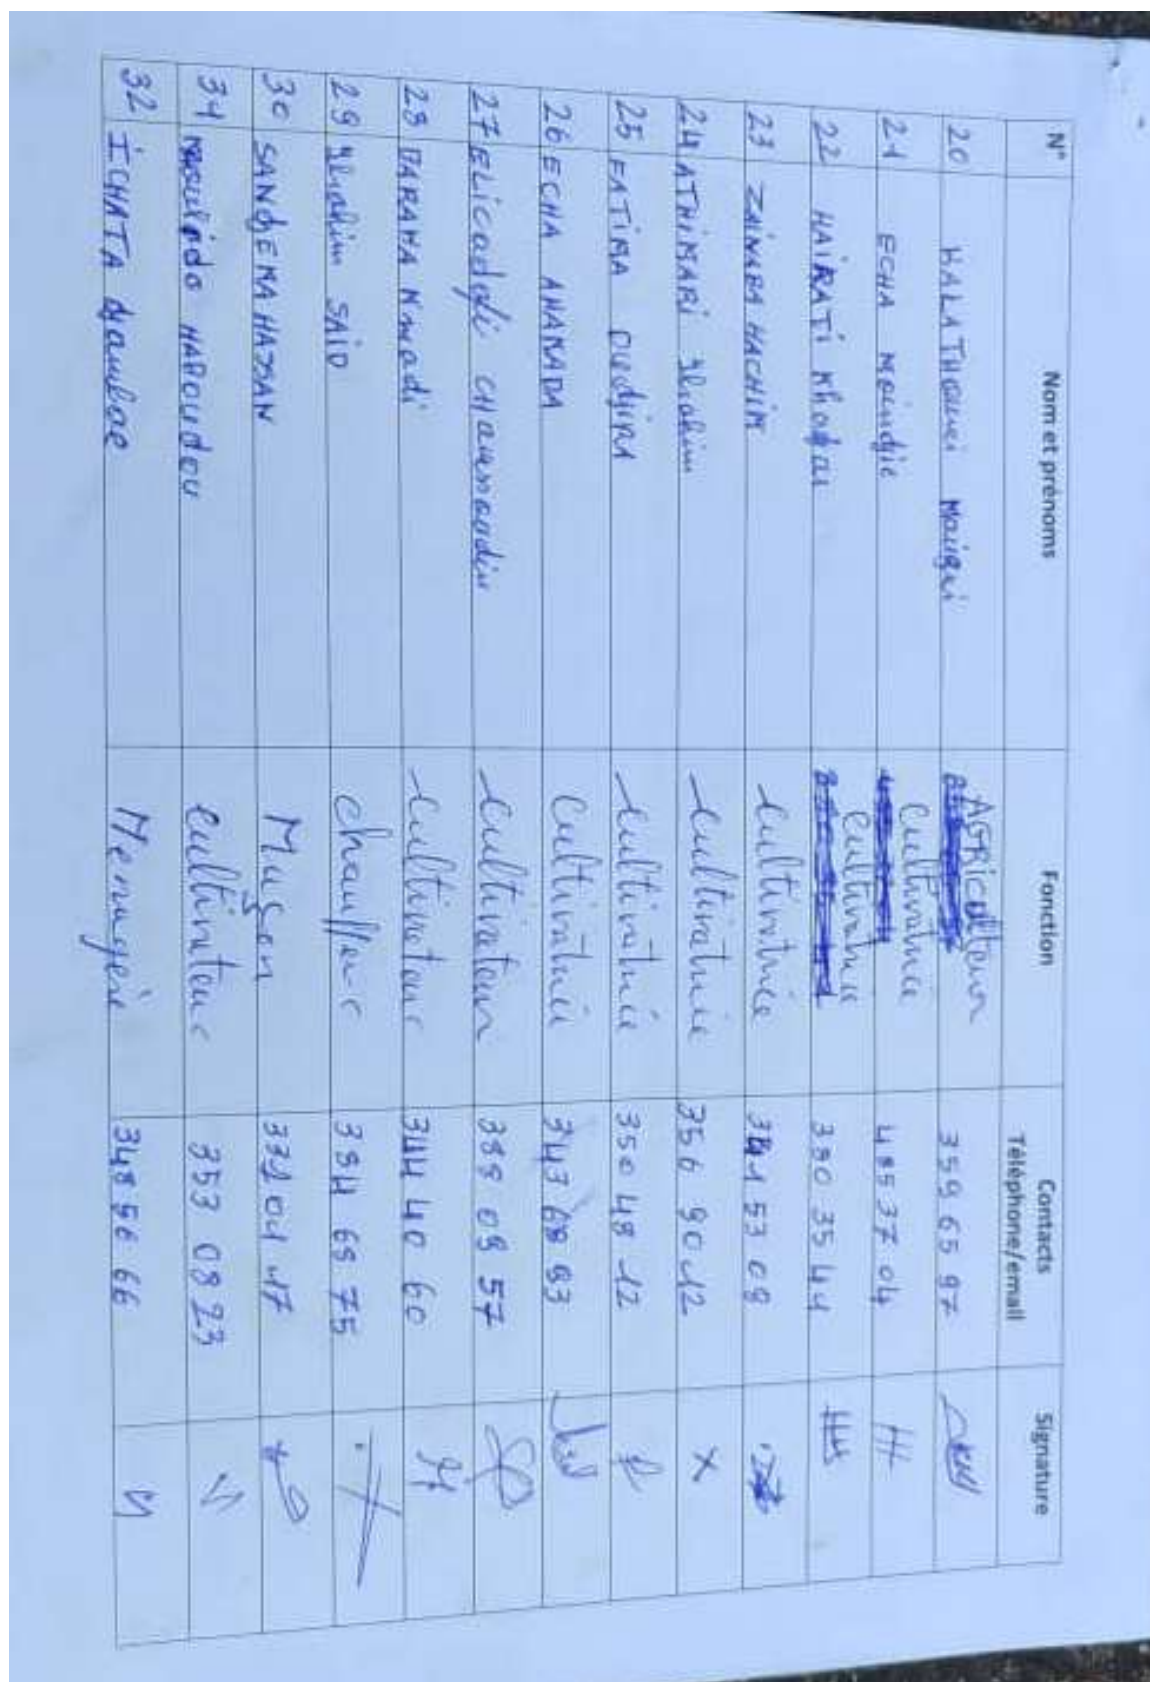 N° Nom et prénoms Fonction Contacts Téléphone/email Signature
20 HALATHOUMI Mougni AGRIculteur 359 65 97
21 ECHA Moindjie Cultivatrice 485 37 04
22 HAIRATI Cultivatrice 330 35 44
23 ZAINABA HACHIM Cultivatrice 341 53 09
24 ATHIMARI Ibrahim Cultivatrice 356 90 12
25 FATIMA Cultivatrice 350 48 12
26 ECHA AHAMADA Cultivatrice 343 68 93
27 Cultivateur 57
28 N'madi Cultivateur 344 40 60
29 Ibrahim SAID chauffeur 394 69 75
30 HASSAN Maçon
31 HAROUDOU Cultivateur 353 08 23
32 ICHATA Menagère 348 56 66